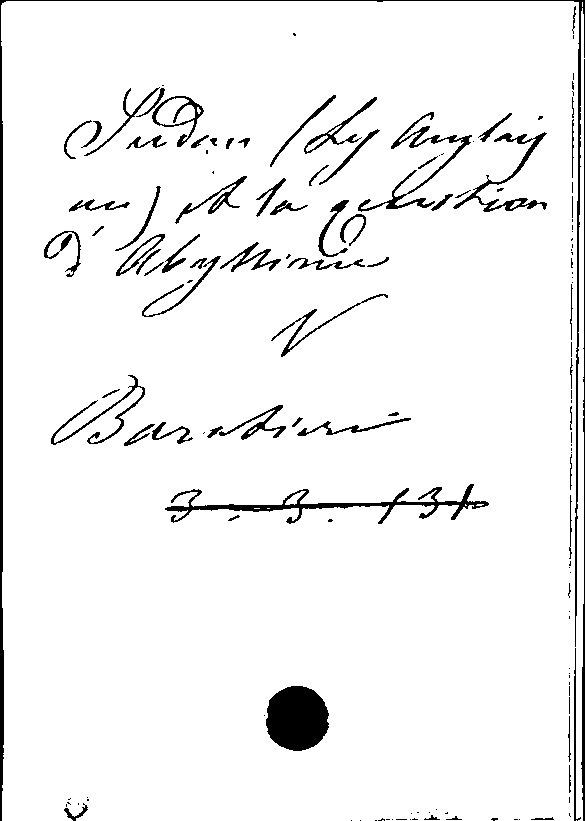 Sudan (Les Anglais
au) et la question
d'Abyssinie
V
Baratieri
3. 3. 131